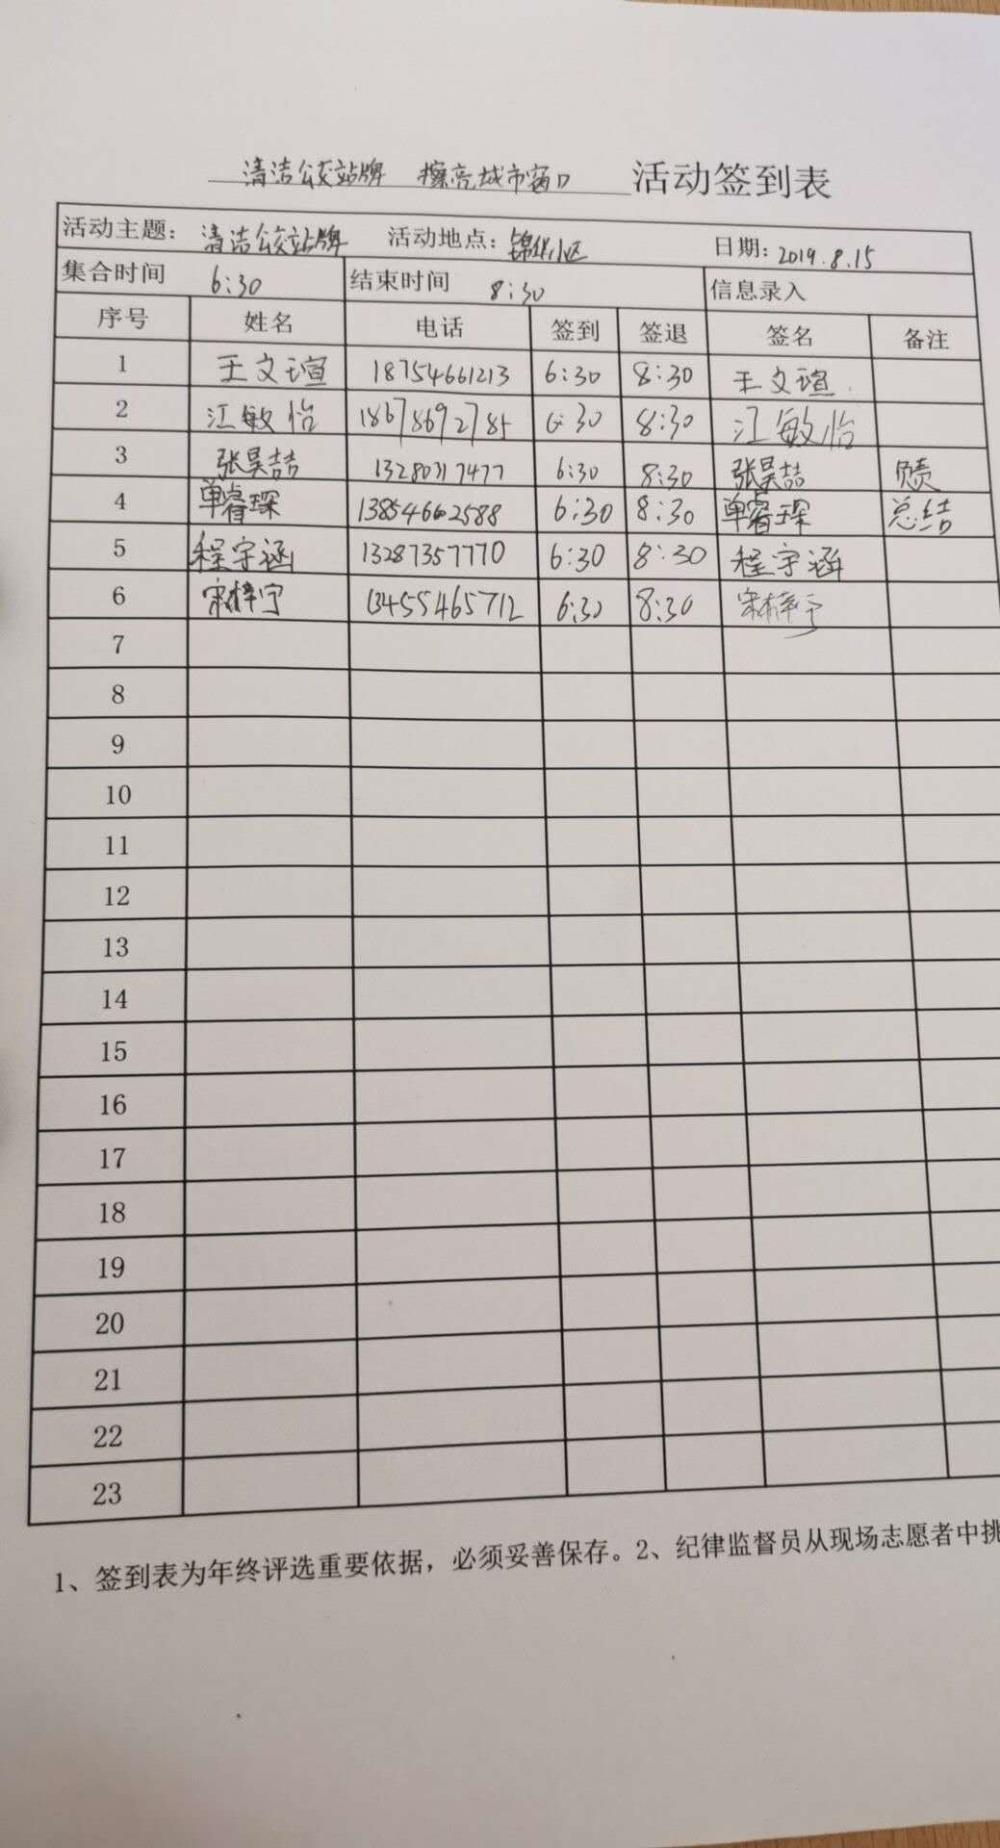 清洁公交站牌 擦亮城市窗口 活动签到表
活动主题: 清洁公交站牌 活动地点: 锦华小区 日期: 2019.8.15
集合时间 6:30 结束时间 8:30 信息录入
序号 姓名 电话 签到 签退 签名 备注
1 王文瑄 18754661213 6:30 8:30 王文瑄
2 江敏怡 18678692785 6:30 8:30 江敏怡
3 张昊喆 13280317477 6:30 8:30 张昊喆 负责
4 单睿琛 13854662588 6:30 8:30 单睿琛 总结
5 程宇涵 13287357770 6:30 8:30 程宇涵
6 宋梓宁 13455465712 6:30 8:30 宋梓宁
7
8
9
10
11
12
13
14
15
16
17
18
19
20
21
22
23
1、签到表为年终评选重要依据，必须妥善保存。2、纪律监督员从现场志愿者中挑